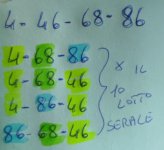 4 - 46 - 68 - 86
4 - 68 - 86
4 - 68 - 46
4 - 86 - 46
86 - 68 - 46
X IL
10
LOTTO
SERALE